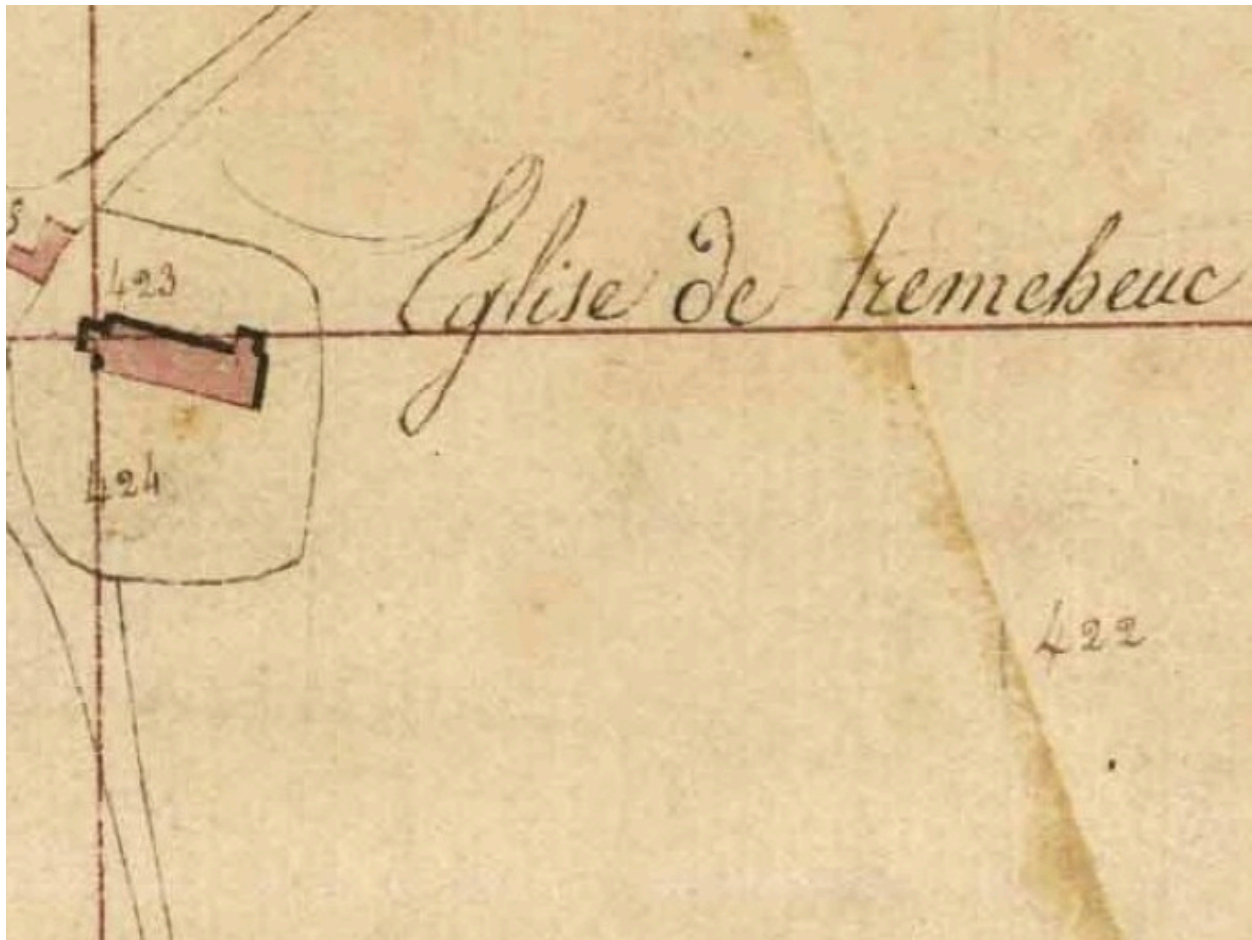 423
Eglise de tremeheuc
424
422